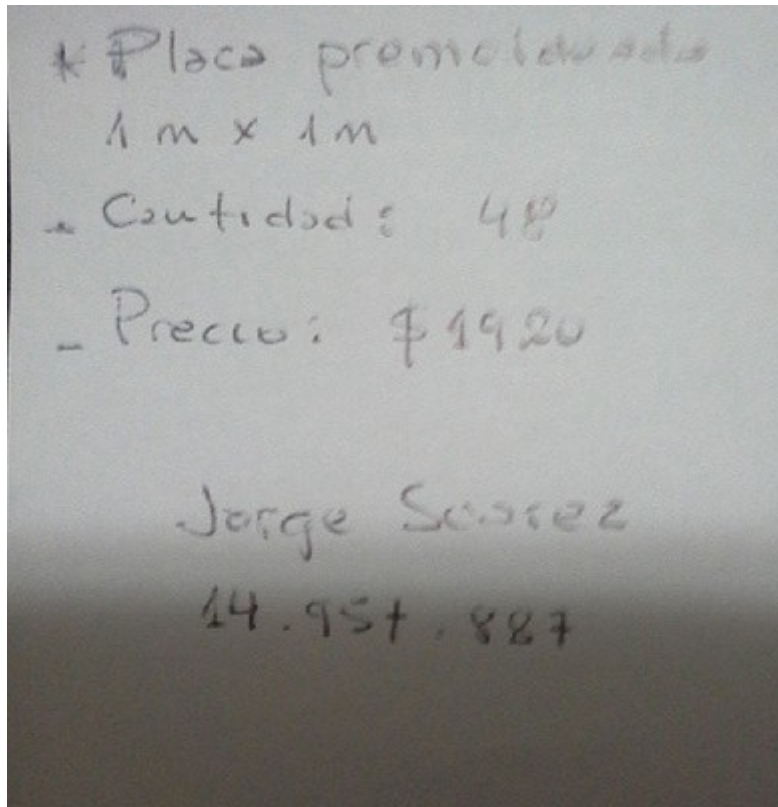 * Placa premoldeada
1 m x 1 m
- Cantidad: 48
- Precio: $1920
Jorge Suarez
14.957.887